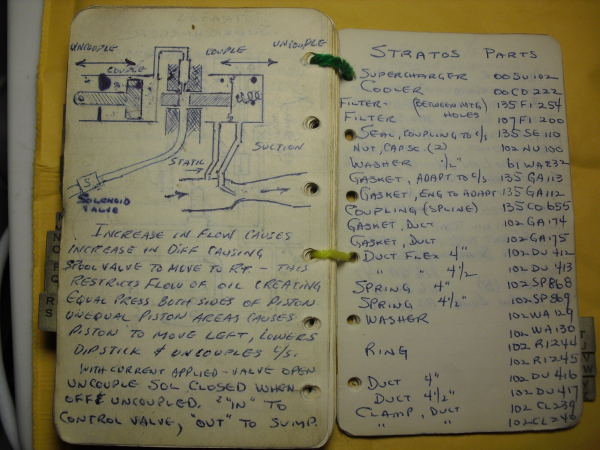 UNCOUPLE
COUPLE
COUPLE
UNCOUPLE
STATIC
SUCTION
S
SOLENOID
VALVE
INCREASE IN FLOW CAUSES
INCREASE IN DIFF CAUSING
SPOOL VALVE TO MOVE TO RT - THIS
RESTRICTS FLOW OF OIL CREATING
EQUAL PRESS BOTH SIDES OF PISTON
UNEQUAL PISTON AREAS CAUSES
PISTON TO MOVE LEFT, LOWERS
DIPSTICK & UNCOUPLES C/S.
WITH CURRENT APPLIED - VALVE OPEN
UNCOUPLE SOL CLOSED WHEN
OFF & UNCOUPLED. "IN" TO
CONTROL VALVE, "OUT" TO SUMP.
STRATOS PARTS
SUPERCHARGER 00SU102
COOLER 00CD222
FILTER - (BETWEEN MTG HOLES) 135FI254
FILTER 107FI200
SEAL, COUPLING TO C/S 135SE110
NUT, CAPSC. (2) 102NU100
WASHER " 61WA232
GASKET, ADAPT TO C/S 135GA113
GASKET, ENG TO ADAPT 135GA112
COUPLING (SPLINE) 135CO655
GASKET, DUCT 102GA174
GASKET, DUCT 102GA175
DUCT FLEX 4" 102DU412
" " 4 1/2 102DU413
SPRING 4" 102SP868
SPRING 4 1/2" 102SP869
WASHER 102WA129
102WA130
RING 102RI244
102RI245
DUCT 4" 102DU416
DUCT 4 1/2" 102DU417
CLAMP, DUCT 102CL239
" " 102CL240
R
S